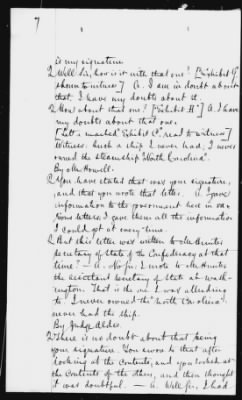 7
is my signature.
Q Well Sir, how is it with that one? ["Exhibit G"
shown to witness] A. I am in doubt about
that. I have my doubts about it.
Q How about that one? ["Exhibit H"] A. I have
my doubts about that one.
[Letter marked "Exhibit C", read to witness]
Witness. Such a ship I never had; I never
owned the steamship "North Carolina".
By Mr. Howell.
Q You have stated that was your signature,
and that you wrote that letter. A. I gave
information to the government here in var-
ious letters; I gave them all the information
I could get at every time.
Q But this letter was written to Mr. Hunter
Secretary of State of the Confederacy at that
time? — A. No sir; I wrote to Mr. Hunter
the assistant Secretary of State at Wash-
ington. That is the one I was alluding
to. I never owned the "North Carolina"
never had the ship.
By Judge Aldis.
Q There is no doubt about that being
your signature. You swore to that after
looking at the contents, and you looked at
the contents of the others, and then thought
it was doubtful. — A. Well sir, I had